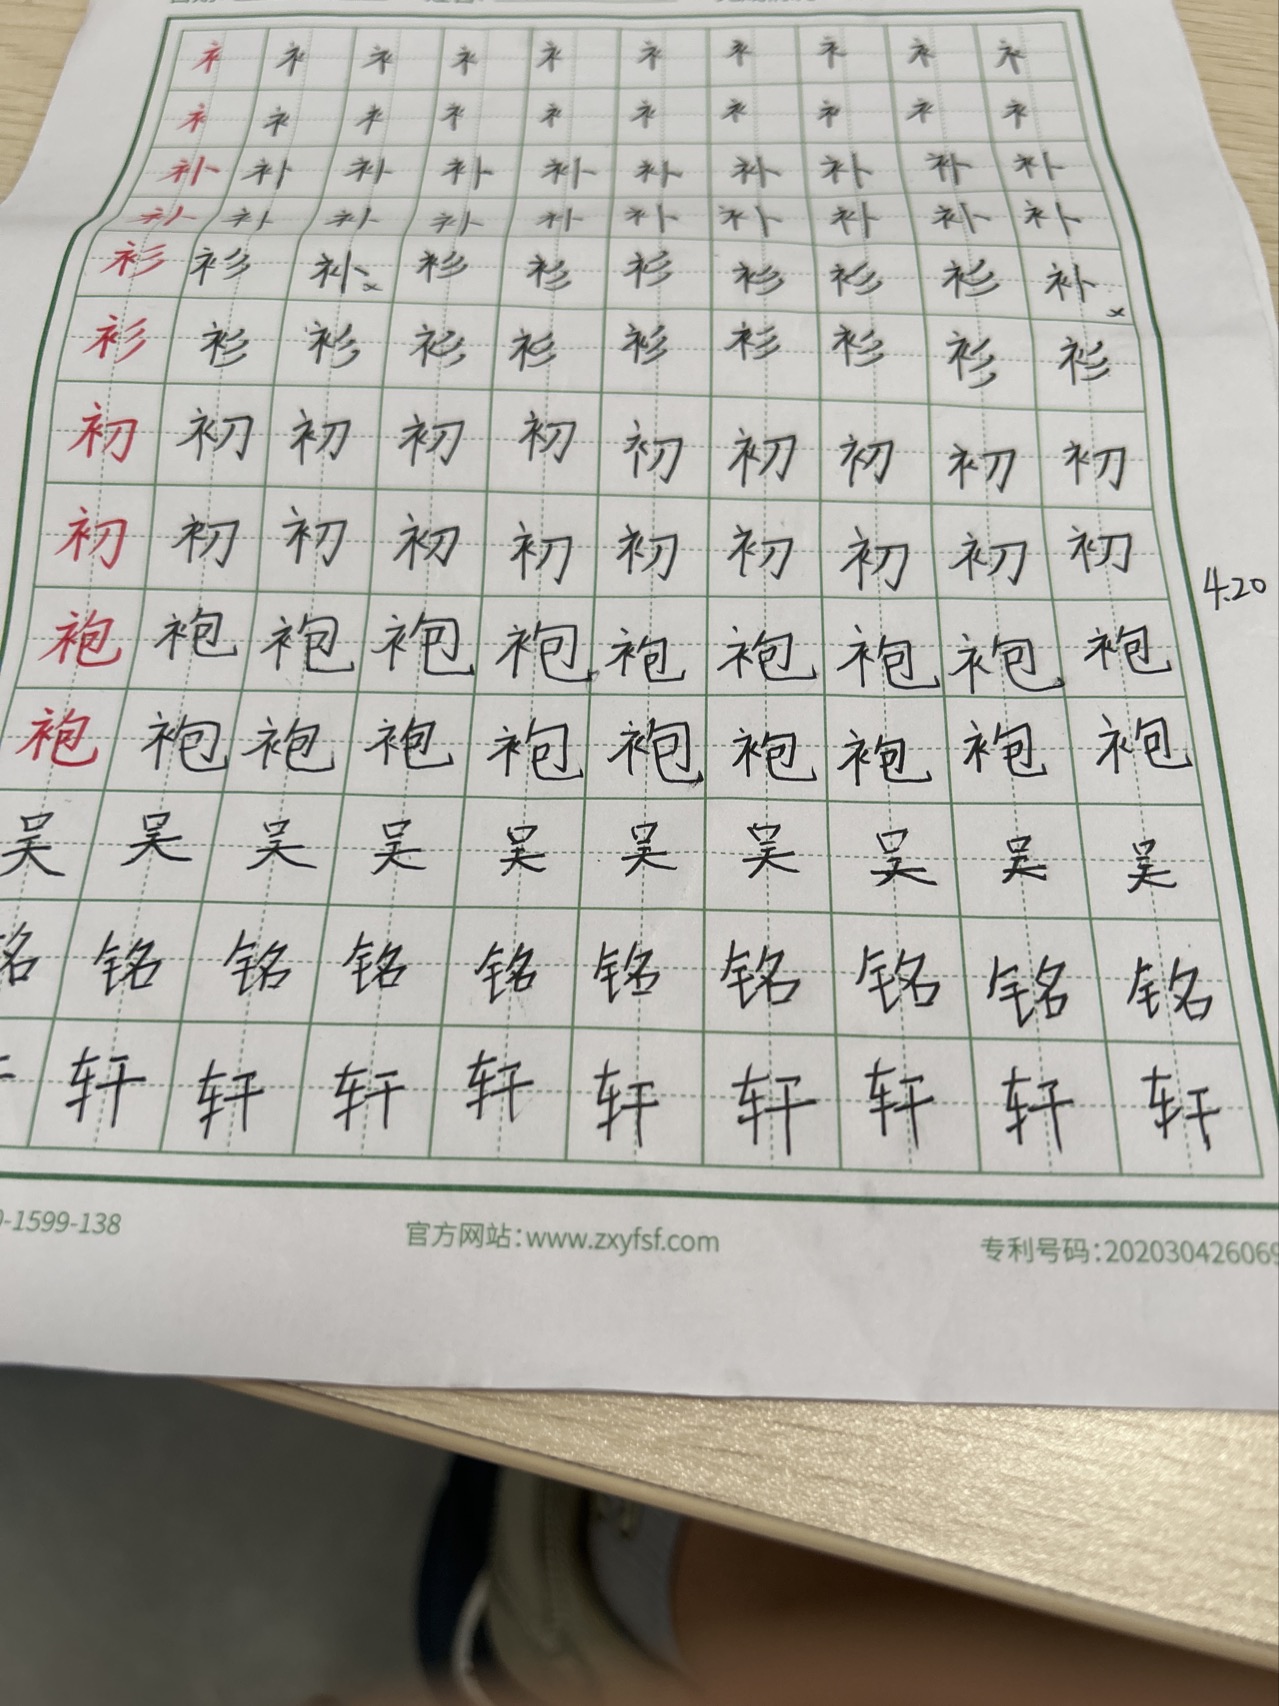 衤 衤 衤 衤 衤 衤 衤 衤 衤 衤
衤 衤 衤 衤 衤 衤 衤 衤 衤 衤
补 补 补 补 补 补 补 补 补 补
补 补 补 补 补 补 补 补 补 补
衫 衫 补 衫 衫 衫 衫 衫 衫 补
衫 衫 衫 衫 衫 衫 衫 衫 衫 衫
初 初 初 初 初 初 初 初 初 初
初 初 初 初 初 初 初 初 初 初
4.20
袍 袍 袍 袍 袍 袍 袍 袍 袍 袍
袍 袍 袍 袍 袍 袍 袍 袍 袍 袍
吴 吴 吴 吴 吴 吴 吴 吴 吴 吴
铭 铭 铭 铭 铭 铭 铭 铭 铭 铭
轩 轩 轩 轩 轩 轩 轩 轩 轩
-1599-138 官方网站：www.zxyfsf.com 专利号码：202030426069